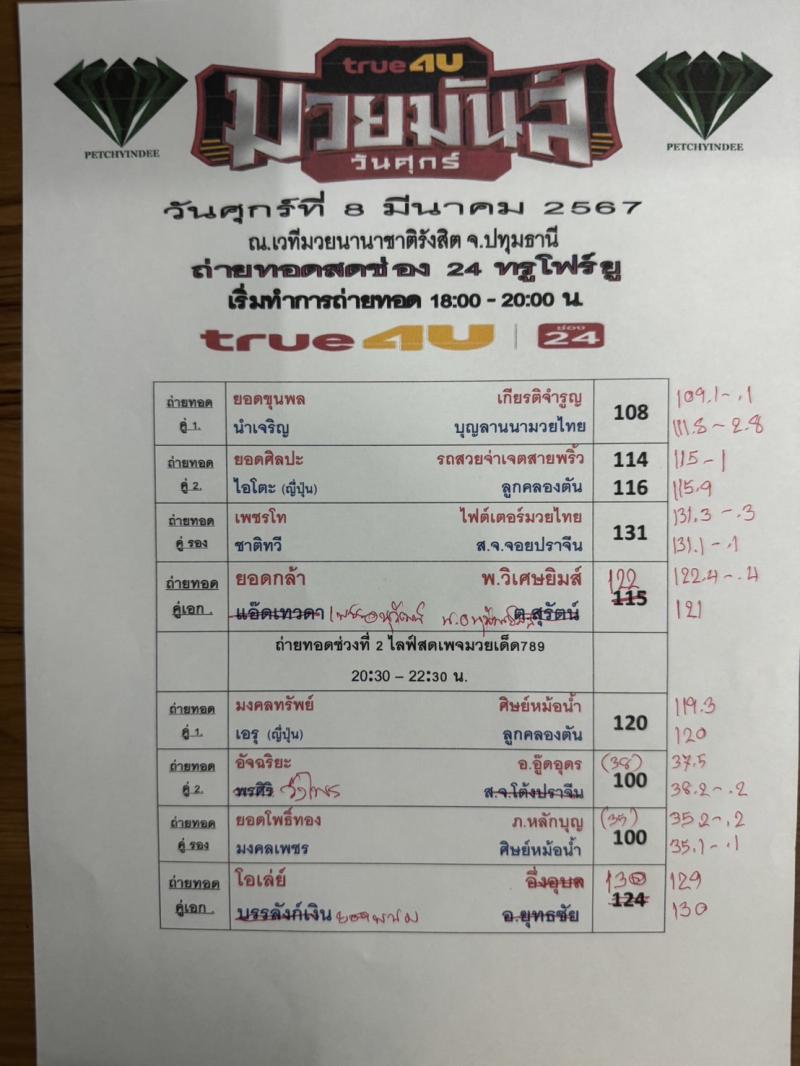 true4U
มวยมันส์
วันศุกร์
PETCHYINDEE
PETCHYINDEE
วันศุกร์ที่ 8 มีนาคม 2567
ณ.เวทีมวยนานาชาติรังสิต จ.ปทุมธานี
ถ่ายทอดสดช่อง 24 ทรูโฟร์ยู
เริ่มทำการถ่ายทอด 18:00 - 20:00 น.
true4U ช่อง 24
ถ่ายทอด ยอดขุนพล เกียรติจำรูญ 108 109.1-.1
คู่ 1. นำเจริญ บุญลานนามวยไทย 111.8-2.8
ถ่ายทอด ยอดศิลปะ รถสวยจ่าเจตสายพริ้ว 114 115-1
คู่ 2. ไอโตะ (ญี่ปุ่น) ลูกคลองตัน 116 115.9
ถ่ายทอด เพชรโท ไฟต์เตอร์มวยไทย 131 131.3-.3
คู่ รอง ชาติทวี ส.จ.จอยปราจีน 131.1-.1
ถ่ายทอด ยอดกล้า พ.วิเศษยิมส์ 122 115 122.4-.4
คู่เอก . แอ๊ดเทวดา ต.สุรัตน์ 121
ถ่ายทอดช่วงที่ 2 ไลฟ์สดเพจมวยเด็ด789
20:30 – 22:30 น.
ถ่ายทอด มงคลทรัพย์ ศิษย์หม้อน้ำ 120 119.3
คู่ 1. เอรุ (ญี่ปุ่น) ลูกคลองตัน 120
ถ่ายทอด อัจฉริยะ อ.อู๊ดอุดร (38) 100 37.5
คู่ 2. พรศิริ ส.จ.โต้งปราจีน 38.2-.2
ถ่ายทอด ยอดโพธิ์ทอง ภ.หลักบุญ (35) 100 35.2-.2
คู่ รอง มงคลเพชร ศิษย์หม้อน้ำ 35.1-.1
ถ่ายทอด โอเล่ย์ อึ่งอุบล 130 124 129
คู่เอก . บรรลังก์เงิน อ.ยุทธชัย 130